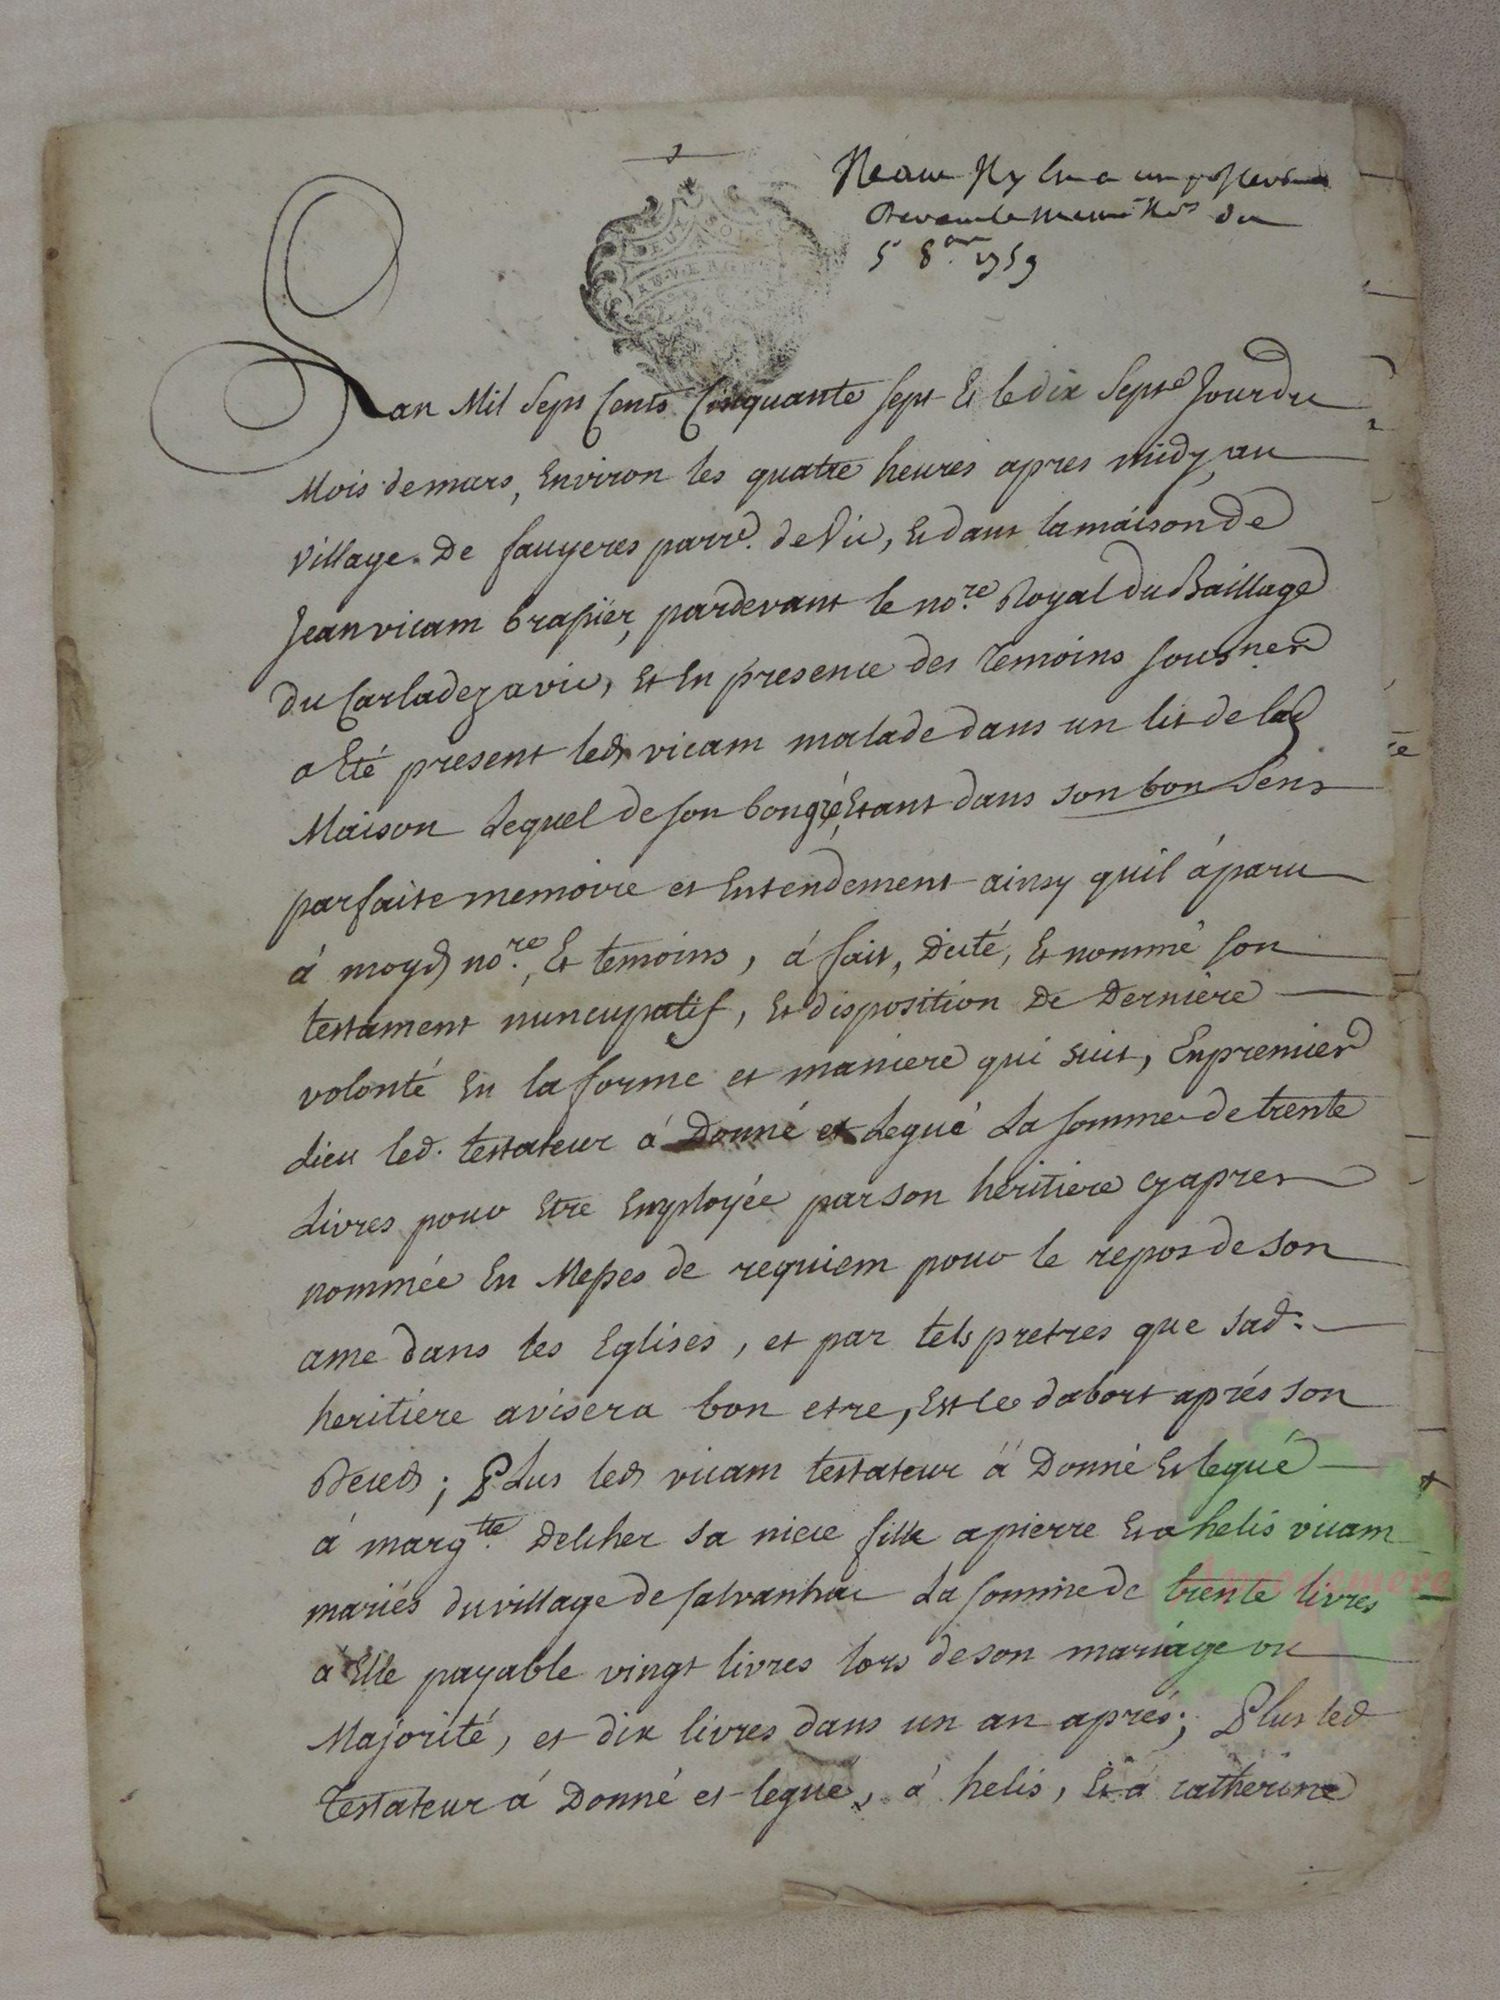 Neant Il y en a un posterieur
devant le meme Nre du
5 8bre 1759
Lan Mil Sept Cents Cinquante Sept Et le dix Septe Jour du
Mois de mars, Environ les quatre heures apres midy, au
village De fauyeres parre. de Vic, Et dans la maison de
Jean vicam brassier, pardevant le nore. Royal du Baillage
du Carladez a vic, Et En presence des Temoins sousnes
a Eté present led vicam malade dans un lit de lad
Maison Lequel de son bon gré Etant dans son bon sens
parfaite memoire et Entendement ainsy quil á paru
á moyd nore. Et temoins, á fait, Dicté, Et nommé son
testament nuncupatif, Et disposition De Derniere
volonté En la forme et maniere qui suit, En premier
Lieu led. testateur á Donné et Legué La somme de trente
Livres pour Etre Employée par son héritiere cy apres
nommée En Messes de requiem pour le repos de son
ame dans les Eglises, et par tels pretres que sad.
heritiére avisera bon etre, Est ce dabort aprés son
Deced; Plus led vicam testateur á Donné Et legué
á margtte. Delcher sa niece fille a pierre Et a helis vicam
mariés du village de salvanhac La somme de trente livres
a Elle payable vingt livres lors de son mariage ou
Majorité, et dix livres dans un an aprés; Plus led
Testateur á Donné et legué, á helis, Et á catherine